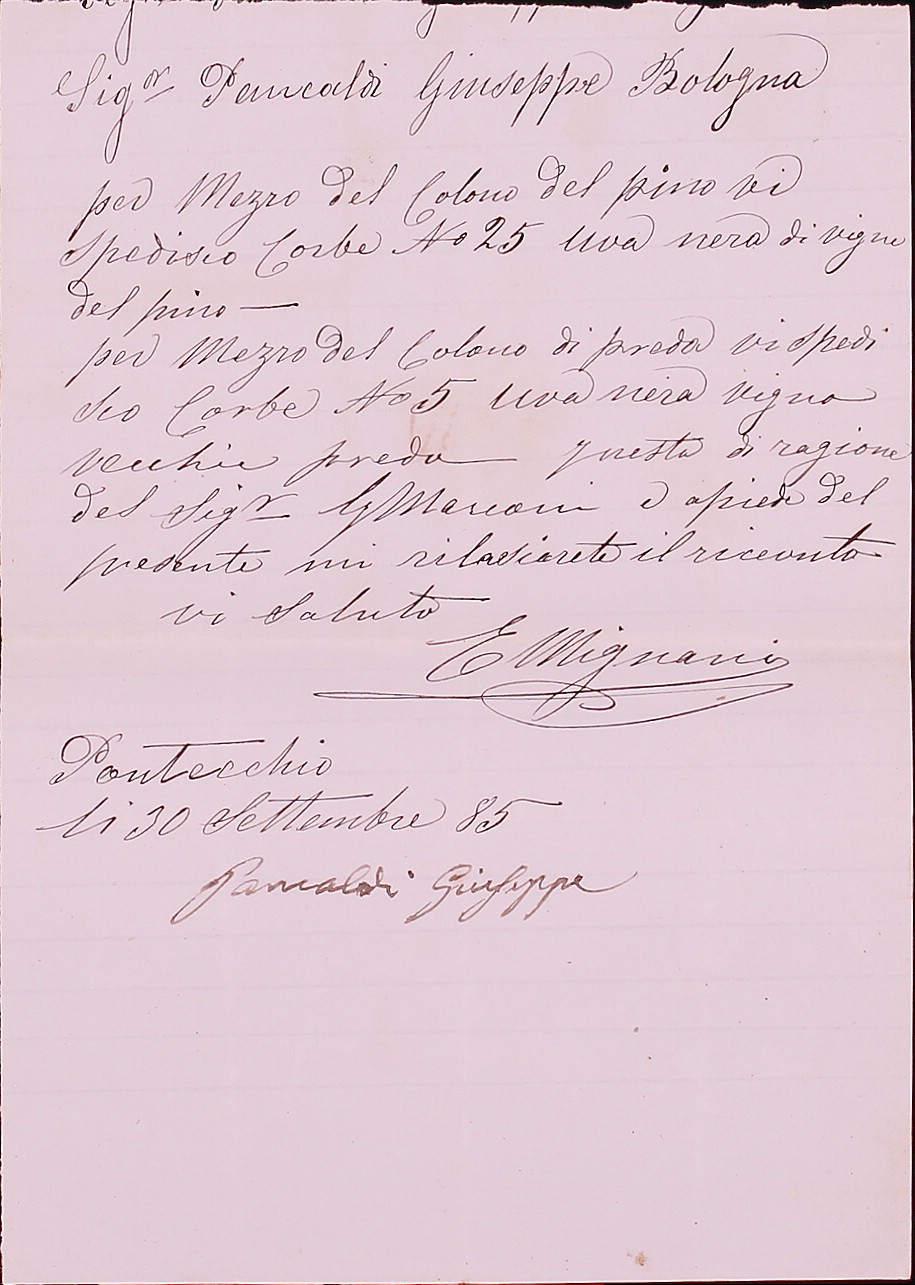 Sigr Pancaldi Giuseppe Bologna
per Mezzo del Colono del pino vi
Spedisco Corbe No 25 uva nera di vigne
del pino —
per Mezzo del Colono di preda vi spedi
sco Corbe No 5 uva nera vigna
vecchia preda — questa di ragione
del Sigr G Marconi e apiedi del
presente mi rilasciarete il riceuto
vi Saluto
E Mignani
Pontecchio
li 30 Settembre 85
Pancaldi Giuseppe